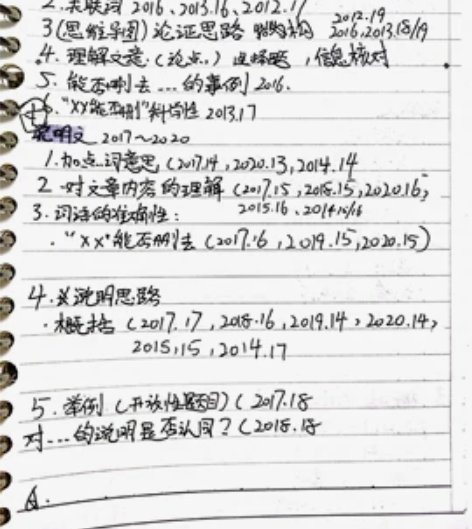 2.关联词 2016、2013.16、2012.17
2012.19
3(思维导图)论证思路 2016,2013.18/19
4. 理解文意(论点)选择题,信息核对
5. 能否删去…的事例 2016.
6."XX能否删"科学性 2013.17
说明文 2017~2020
1.加点词意思(2017.14,2020.13,2014.14
2.对文章内容的理解(2017.15,2018.15,2020.16,
2015.16、2014.15/16
3.词语的准确性:
·"XX"能否删去(2017.16,2019.15,2020.15)
4.关说明思路
·概括(2017.17,2018.16,2019.14,2020.14,
2015,15,2014.17
5.举例(开放性题目)(2017.18
对…的说明是否认同?(2018.18
6.